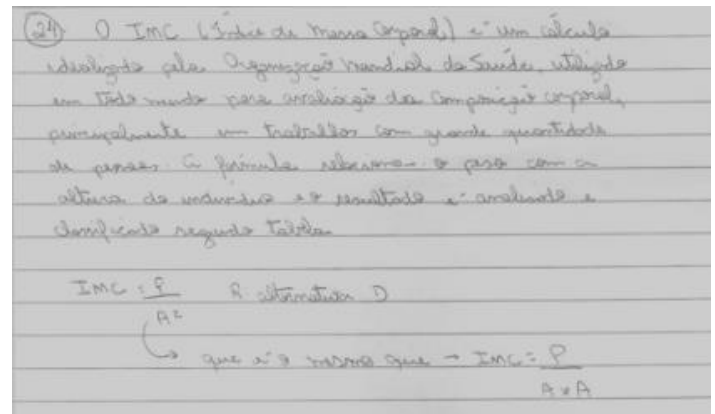 24) O IMC (Índice de Massa Corporal) é um cálculo
idealizado pela Organização Mundial da Saúde, utilizado
em todo mundo para avaliação da composição corporal,
principalmente em trabalhos com grande quantidade
de pessoas. A fórmula relaciona o peso com a
altura do indivíduo e o resultado é analisado e
classificado segundo tabela.
IMC = P/A² R alternativa D
que é o mesmo que → IMC = P/A x A